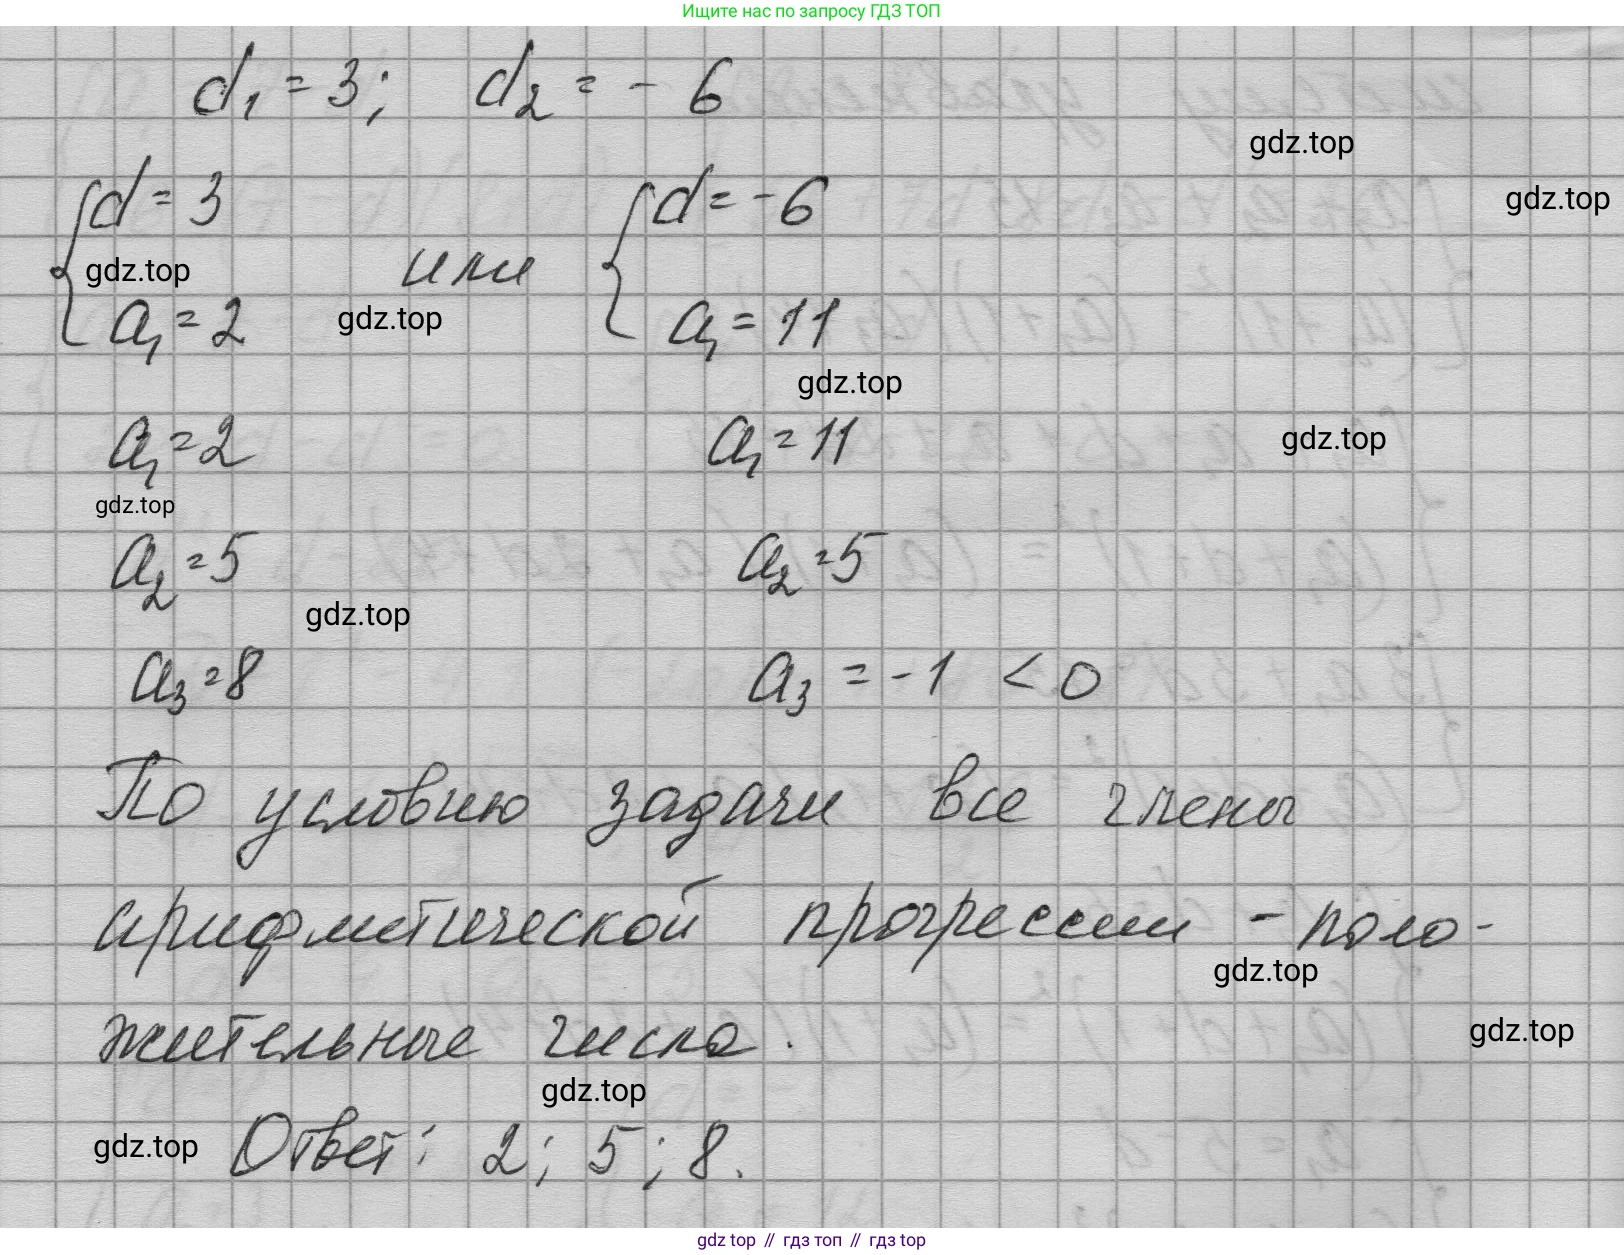 Ищите нас по запросу ГДЗ ТОП
d₁ = 3; d₂ = - 6
gdz.top
{d = 3 {d = -6
gdz.top
gdz.top или
a₁ = 2 gdz.top a₁ = 11
gdz.top
a₁ = 2 a₁ = 11 gdz.top
gdz.top
a₂ = 5 a₂ = 5
gdz.top
a₃ = 8 a₃ = -1 < 0
По условию задачи все члены
арифметической прогрессии - поло-
gdz.top
жительные числа. gdz.top
gdz.top
gdz.top Ответ: 2; 5; 8.
gdz top // гдз топ // гдз top